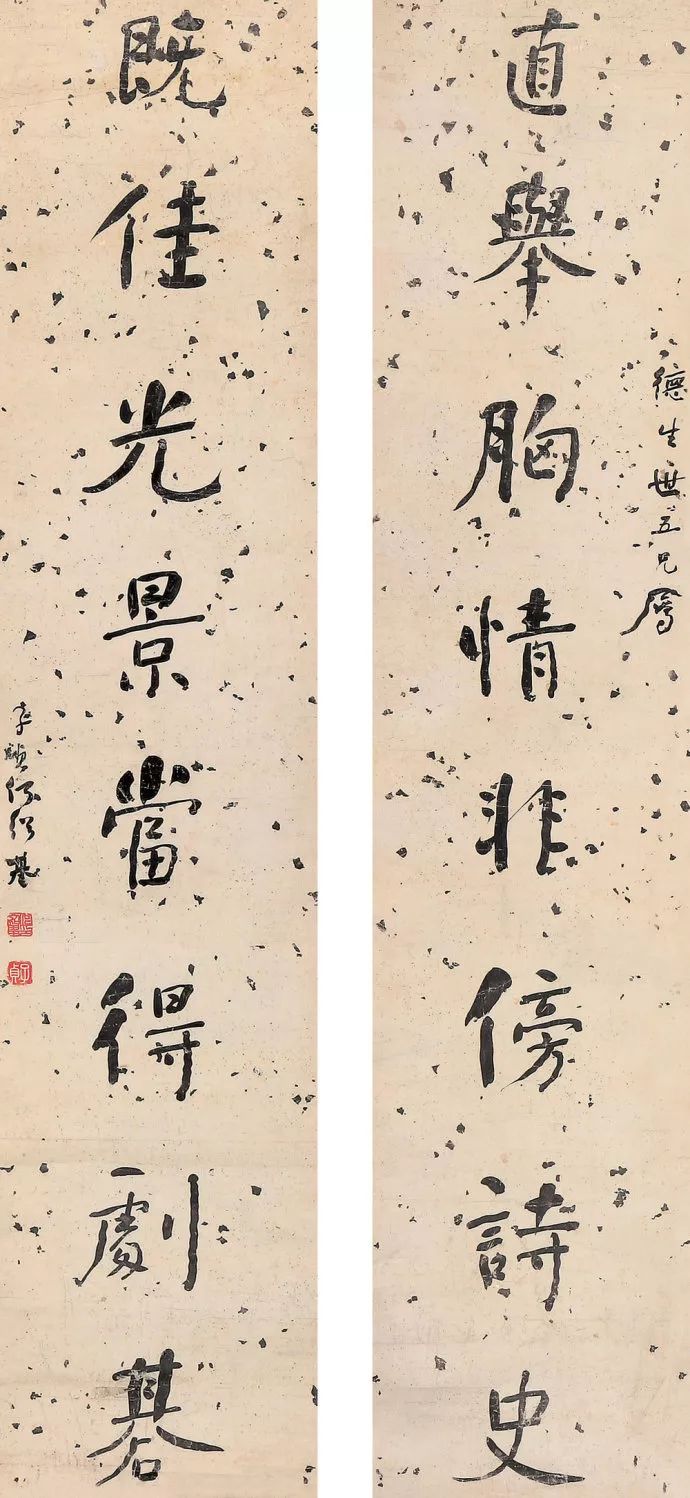 德生世五兄屬
直舉胸情非傍詩史
既佳光景當得劇棊
子貞何紹基